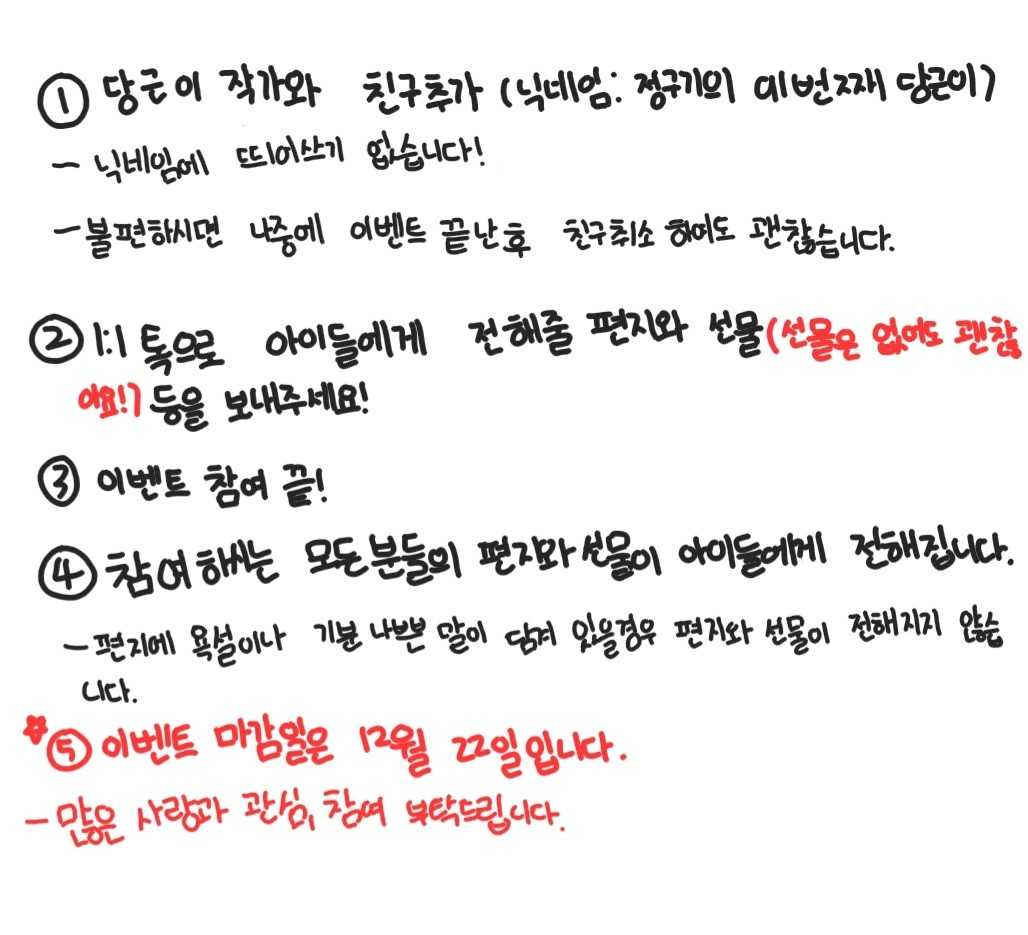 ① 당근이 작가와 친구추가 (닉네임: 정구기의 이번째 당근이)
- 닉네임에 띄어쓰기 없습니다!
- 불편하시면 나중에 이벤트 끝난후 친구취소 하여도 괜찮습니다.
② 1:1 톡으로 아이들에게 전해줄 편지와 선물(선물은 없어도 괜찮
아요!) 등을 보내주세요!
③ 이벤트 참여 끝!
④ 참여하시는 모든분들의 편지와 선물이 아이들에게 전해집니다.
- 편지에 욕설이나 기분 나쁜 말이 담겨 있을경우 편지와 선물이 전해지지 않습
니다.
☆⑤ 이벤트 마감일은 12월 22일입니다.
- 많은 사랑과 관심, 참여 부탁드립니다.